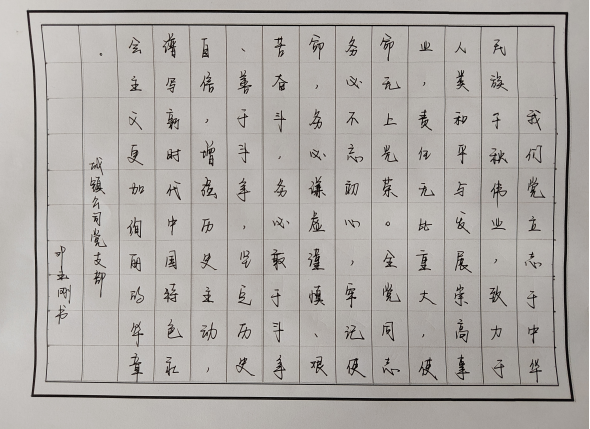 我们党立志于中华
民族千秋伟业，致力于
人类和平与发展崇高事
业，责任无比重大，使
命无上光荣。全党同志
务必不忘初心、牢记使
命，务必谦虚谨慎、艰
苦奋斗，务必敢于斗争
、善于斗争，坚定历史
自信，增强历史主动，
谱写新时代中国特色社
会主义更加绚丽的华章
。
城镇公司党支部
刚书